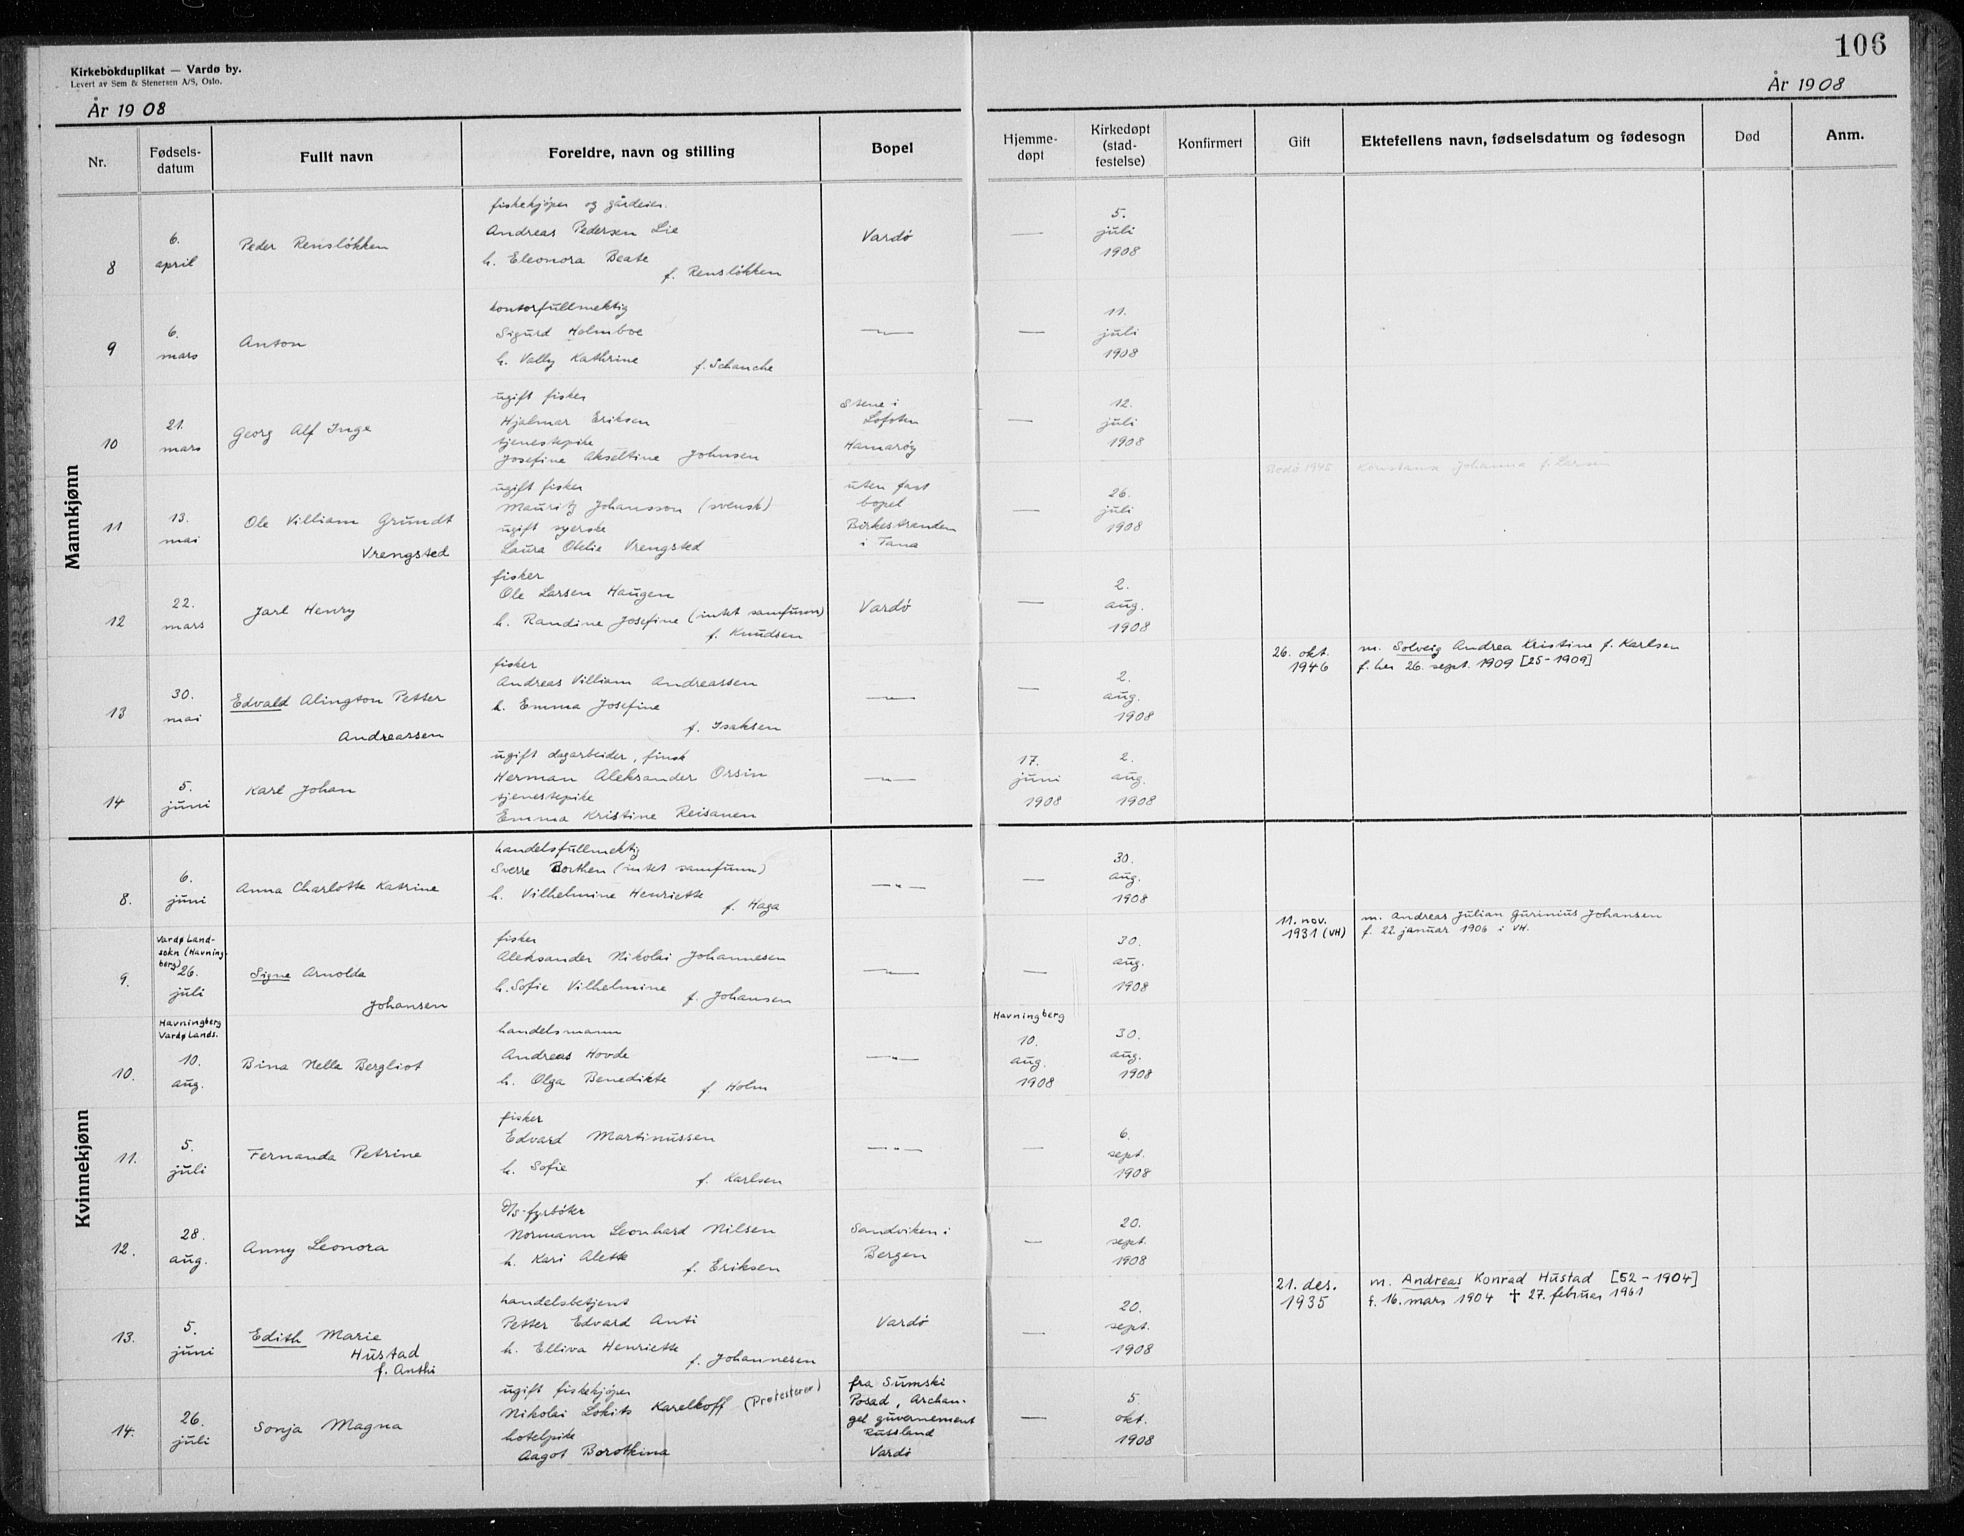 106
Kirkebokduplikat — Vardø by.
Levert av Sem & Stenersen A/S, Oslo.
År 1908
År 1908
Nr.
Fødsels-
datum
Fullt navn
Foreldre, navn og stilling
Bopel
Hjemme-
døpt
Kirkedøpt
(stad-
festelse)
Konfirmert
Gift
Ektefellens navn, fødselsdatum og fødesogn
Død
Anm.
Mannkjønn
8
6.
april
Peder Rensløkken
fiskekjøper og gårdeier.
Andreas Pedersen Lie
h. Eleonora Beate
f. Rensløkken
Vardø
—
5.
juli
1908
9
6.
mars
Anton
kontorfullmektig
Sigurd Holmboe
h. Vally Kathrine
f. Schanche
—"—
—
11.
juli
1908
10
21.
mars
Georg Alf Inge
ugift fisker
Hjalmar Eriksen
tjenestepike
Josefine Akseltine Johnsen
Stene i
Lofoten
Hamarøy
—
12.
juli
1908
11
13.
mai
Ole Villiam Grundt
Vrengsted
ugift fisker
Mauritz Johansson (svensk)
ugift syerske
Laura Otelie Vrengsted
uten fast
bopel
Birkestranden
i Tana
—
26.
juli
1908
Bodø 1945
Konstanse Johanna f. Larsen
12
22.
mars
Jarl Henry
fisker
Ole Larsen Haugen
h. Randine Josefine (intet samfunn)
f. Knudsen
Vardø
—
2.
aug.
1908
13
30.
mai
Edvald Alington Petter
Andreassen
fisker
Andreas Villiam Andreassen
h. Emma Josefine
f. Isaksen
—"—
—
2.
aug.
1908
26. okt.
1946
m. Solveig Andrea Kristine f. Karlsen
f. her 26. sept. 1909 [25-1909]
14
5.
juni
Karl Johan
ugift dagarbeider, finsk
Herman Aleksander Orsin
tjenestepike
Emma Kristine Reisanen
—"—
17.
juni
1908
2.
aug.
1908
Kvinnekjønn
8.
6.
juni
Anna Charlotte Katrine
handelsfullmektig
Sverre Borthen (intet samfunn)
h. Vilhelmine Henriette
f. Haga
—"—
—
30.
aug.
1908
9.
Vardø Land-
sokn (Havning-
berg)
26.
juli
Signe Arnolda
Johansen
fisker
Aleksander Nikolai Johannesen
h. Sofie Vilhelmine
f. Johansen
—"—
—
30.
aug.
1908
11. nov.
1931 (VH)
m. Andreas Julian Gurinius Johansen
f. 22. januar 1906 i VH.
10.
Havningberg
Vardø Lands.
10.
aug.
Bina Nelle Bergliot
handelsmann
Andreas Hovde
h. Olga Benedikte
f. Holm
—"—
Havningberg
10.
aug.
1908
30.
aug.
1908
11.
5.
juli
Fernanda Petrine
fisker
Edvard Martinussen
h. Sofie
f. Karlsen
—"—
—
6.
sept.
1908
12.
28.
aug.
Anny Leonora
D/s-fyrbøter
Normann Leonhard Nilsen
h. Kari Alette
f. Eriksen
Sandviken i
Bergen
—
20.
sept.
1908
13.
5.
juni
Edith Marie
Hustad
f. Anthi
handelsbetjent
Petter Edvard Anti
h. Elliva Henriette
f. Johannesen
Vardø
—
20.
sept.
1908
21. des.
1935
m. Andreas Konrad Hustad [52-1904]
f. 16. mars 1904 † 27. februar 1961
14.
26.
juli
Sonja Magna
ugift fiskekjøper
Nikolai Lokits Karelkoff (Protesterer)
hotelpike
Aagot Borotkina
fra Sumski
Posad, Archan-
gel guvernement
Russland
Vardø
—
5.
okt.
1908